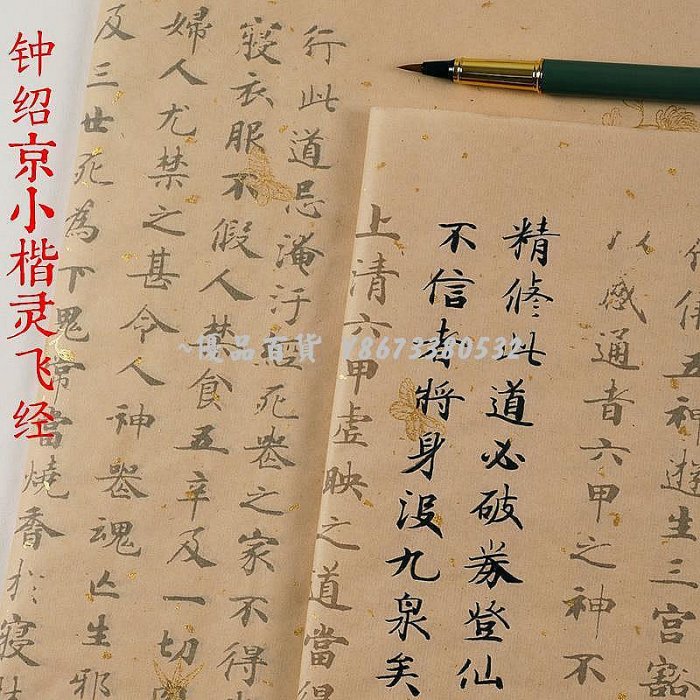 钟绍京小楷灵飞经
五神遊生三宮豁
以感通者六甲之神不
精修此道必破券登仙
不信者將身沒九泉矣
上清六甲虛映之道當得
行此道忌淹汙經死喪之家不得
寢衣服不假人禁食五辛及一切
婦人尤禁之甚令人神喪魂亡生邪
及三世死為下鬼常當燒香於寢
~優品百貨 Y8673380532